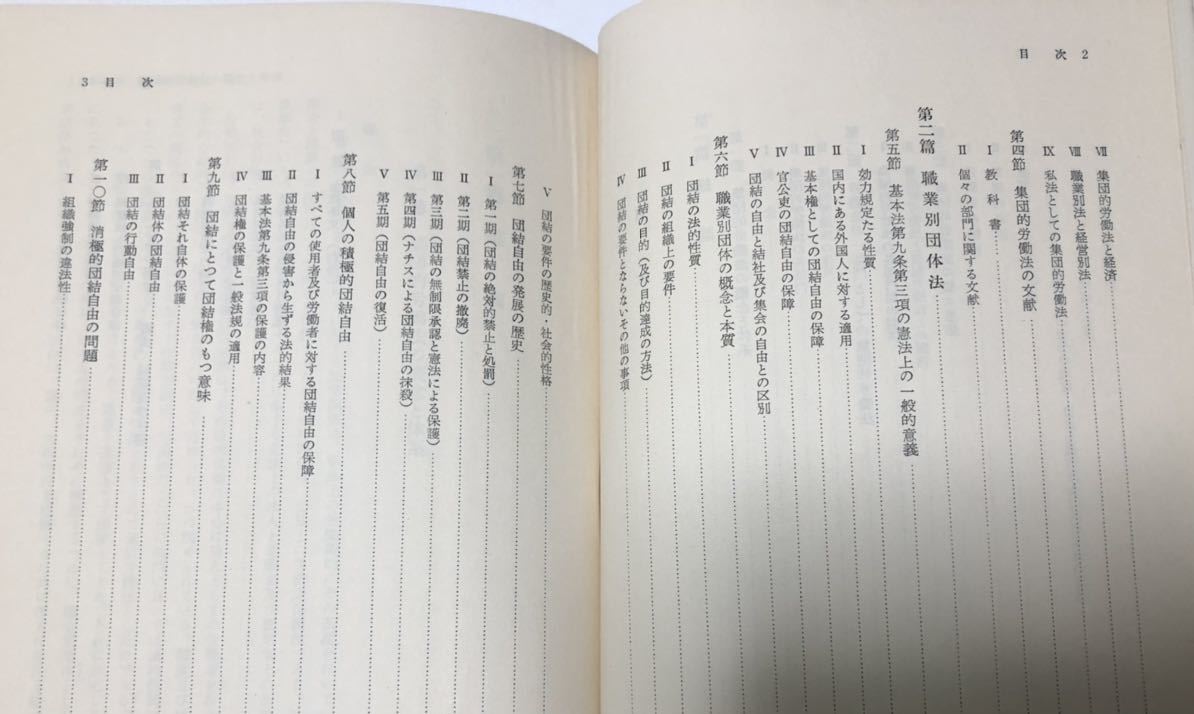 目次 2
Ⅶ 集団的労働法と経済
Ⅷ 職業別法と経営別法
Ⅸ 私法としての集団的労働法
第四節 集団的労働法の文献
Ⅰ 教科書
Ⅱ 個々の部門に関する文献
第二篇 職業別団体法
第五節 基本法第九条第三項の憲法上の一般的意義
Ⅰ 効力規定たる性質
Ⅱ 国内にある外国人に対する適用
Ⅲ 基本権としての団結自由の保障
Ⅳ 官公吏の団結自由の保障
Ⅴ 団結の自由と結社及び集会の自由との区別
第六節 職業別団体の概念と本質
Ⅰ 団結の法的性質
Ⅱ 団結の組織上の要件
Ⅲ 団結の目的(及び目的達成の方法)
Ⅳ 団結の要件とならないその他の事項
3 目次
Ⅴ 団結の要件の歴史的・社会的性格
第七節 団結自由の発展の歴史
Ⅰ 第一期(団結の絶対的禁止と処罰)
Ⅱ 第二期(団結禁止の撤廃)
Ⅲ 第三期(団結の無制限承認と憲法による保護)
Ⅳ 第四期(ナチスによる団結自由の抹殺)
Ⅴ 第五期(団結自由の復活)
第八節 個人の積極的団結自由
Ⅰ すべての使用者及び労働者に対する団結自由の保障
Ⅱ 団結自由の侵害から生ずる法的結果
Ⅲ 基本法第九条第三項の保護の内容
Ⅳ 団結権の保護と一般法規の適用
第九節 団結にとつて団結権のもつ意味
Ⅰ 団結それ自体の保護
Ⅱ 団結体の団結自由
Ⅲ 団結の行動自由
第一〇節 消極的団結自由の問題
Ⅰ 組織強制の違法性